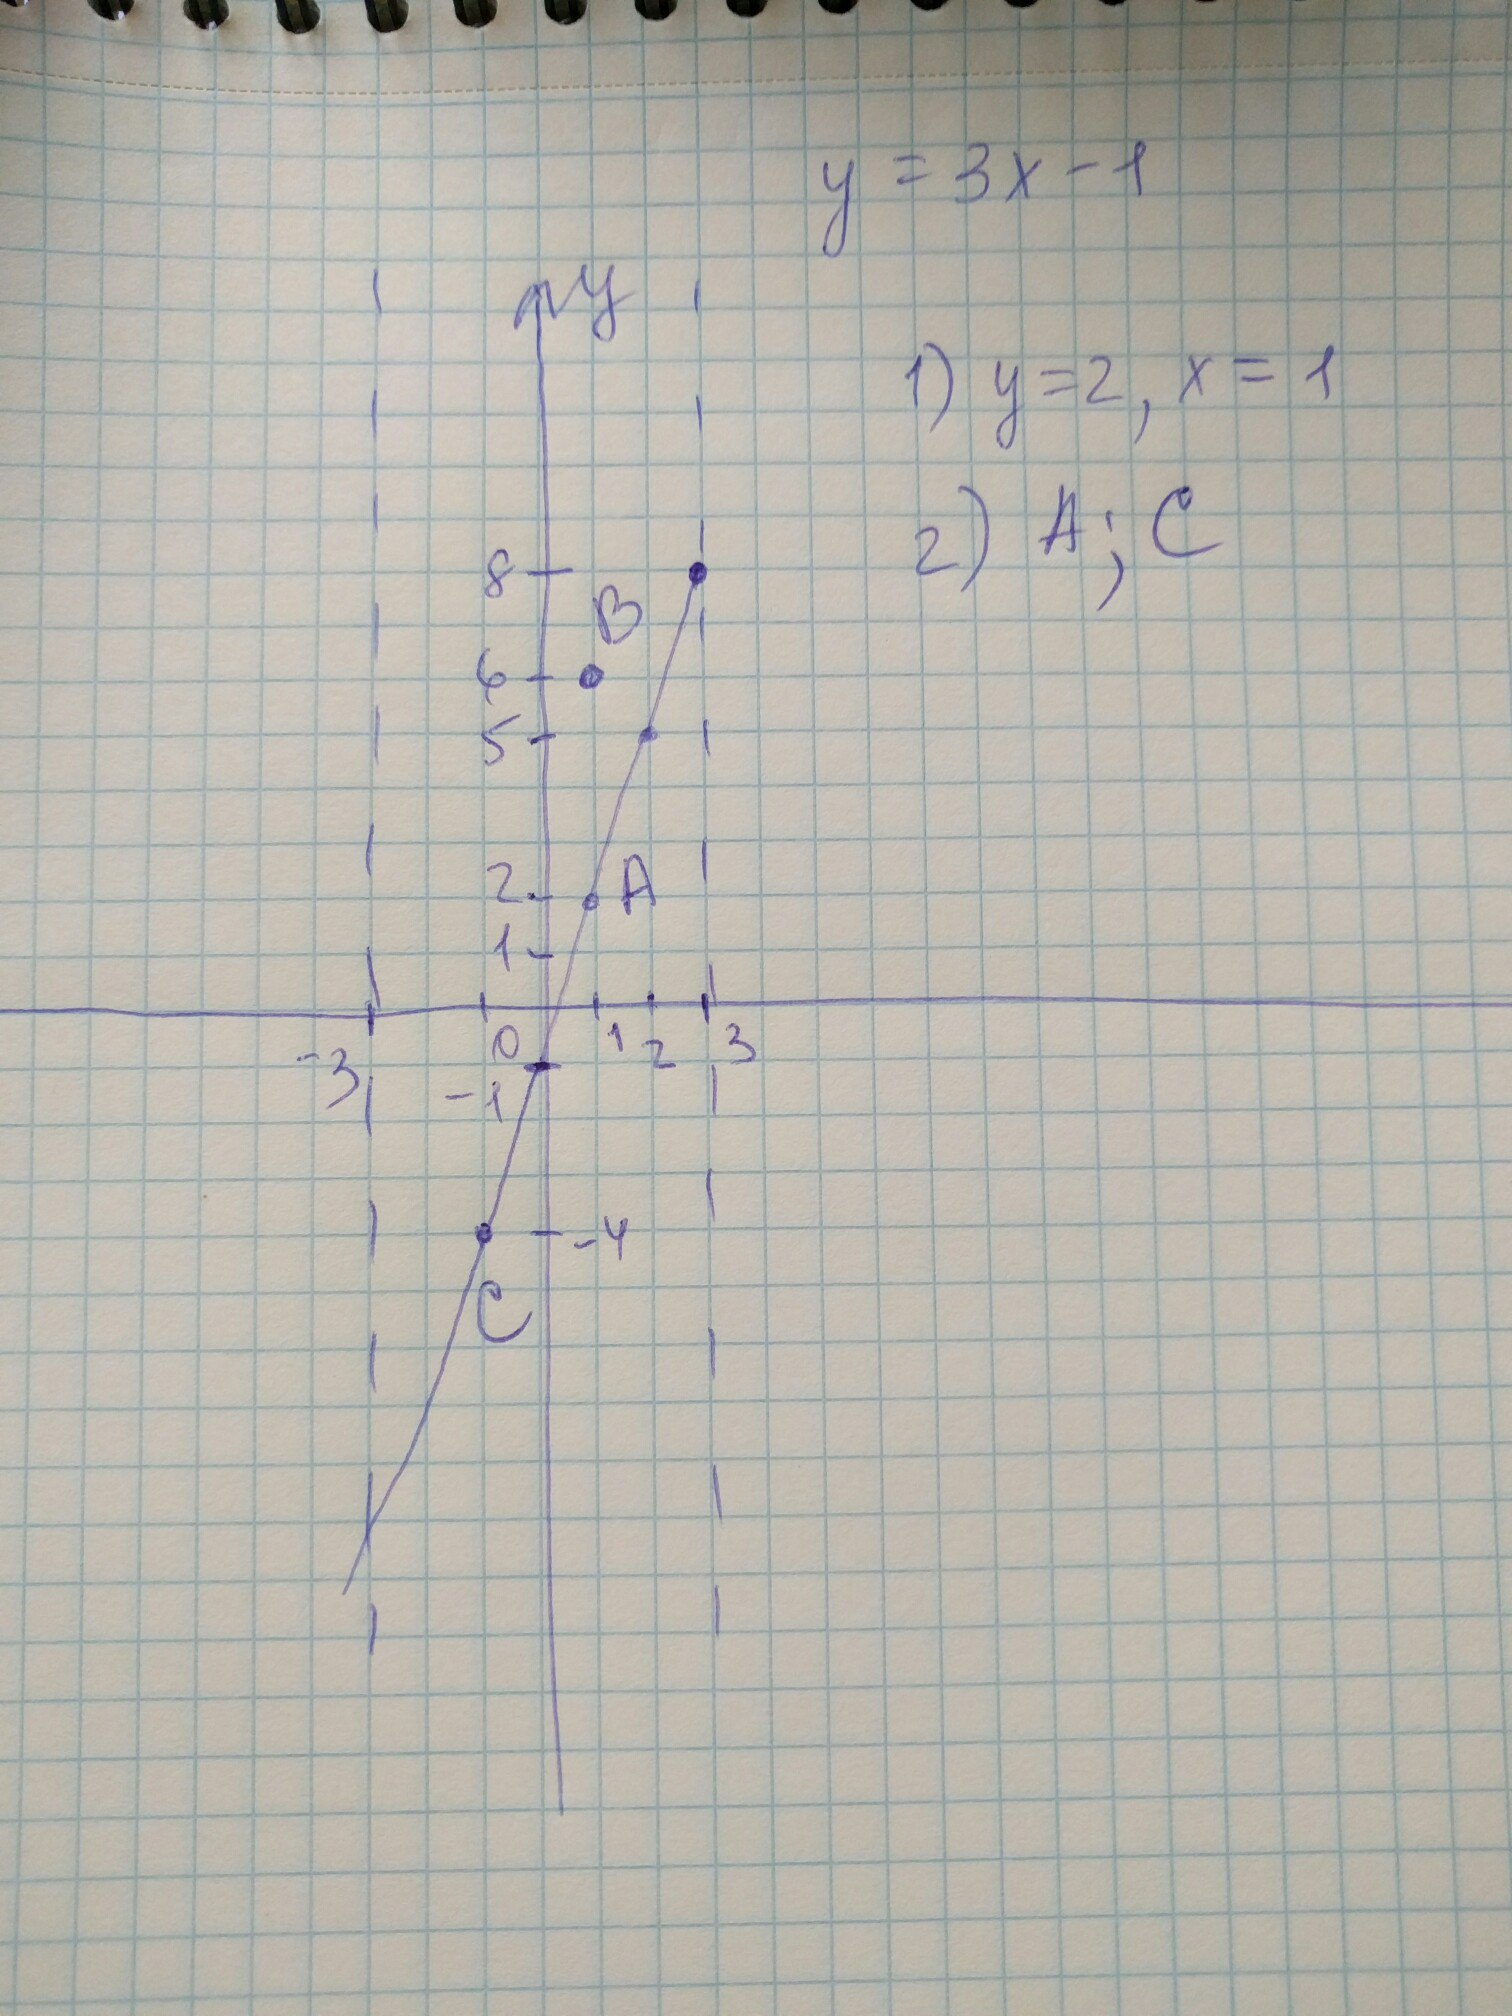 y = 3x - 1
y
1) y = 2, x = 1
2) A; C
8
B
6
5
2 A
1
-3 0 1 2 3
-1
-4
C